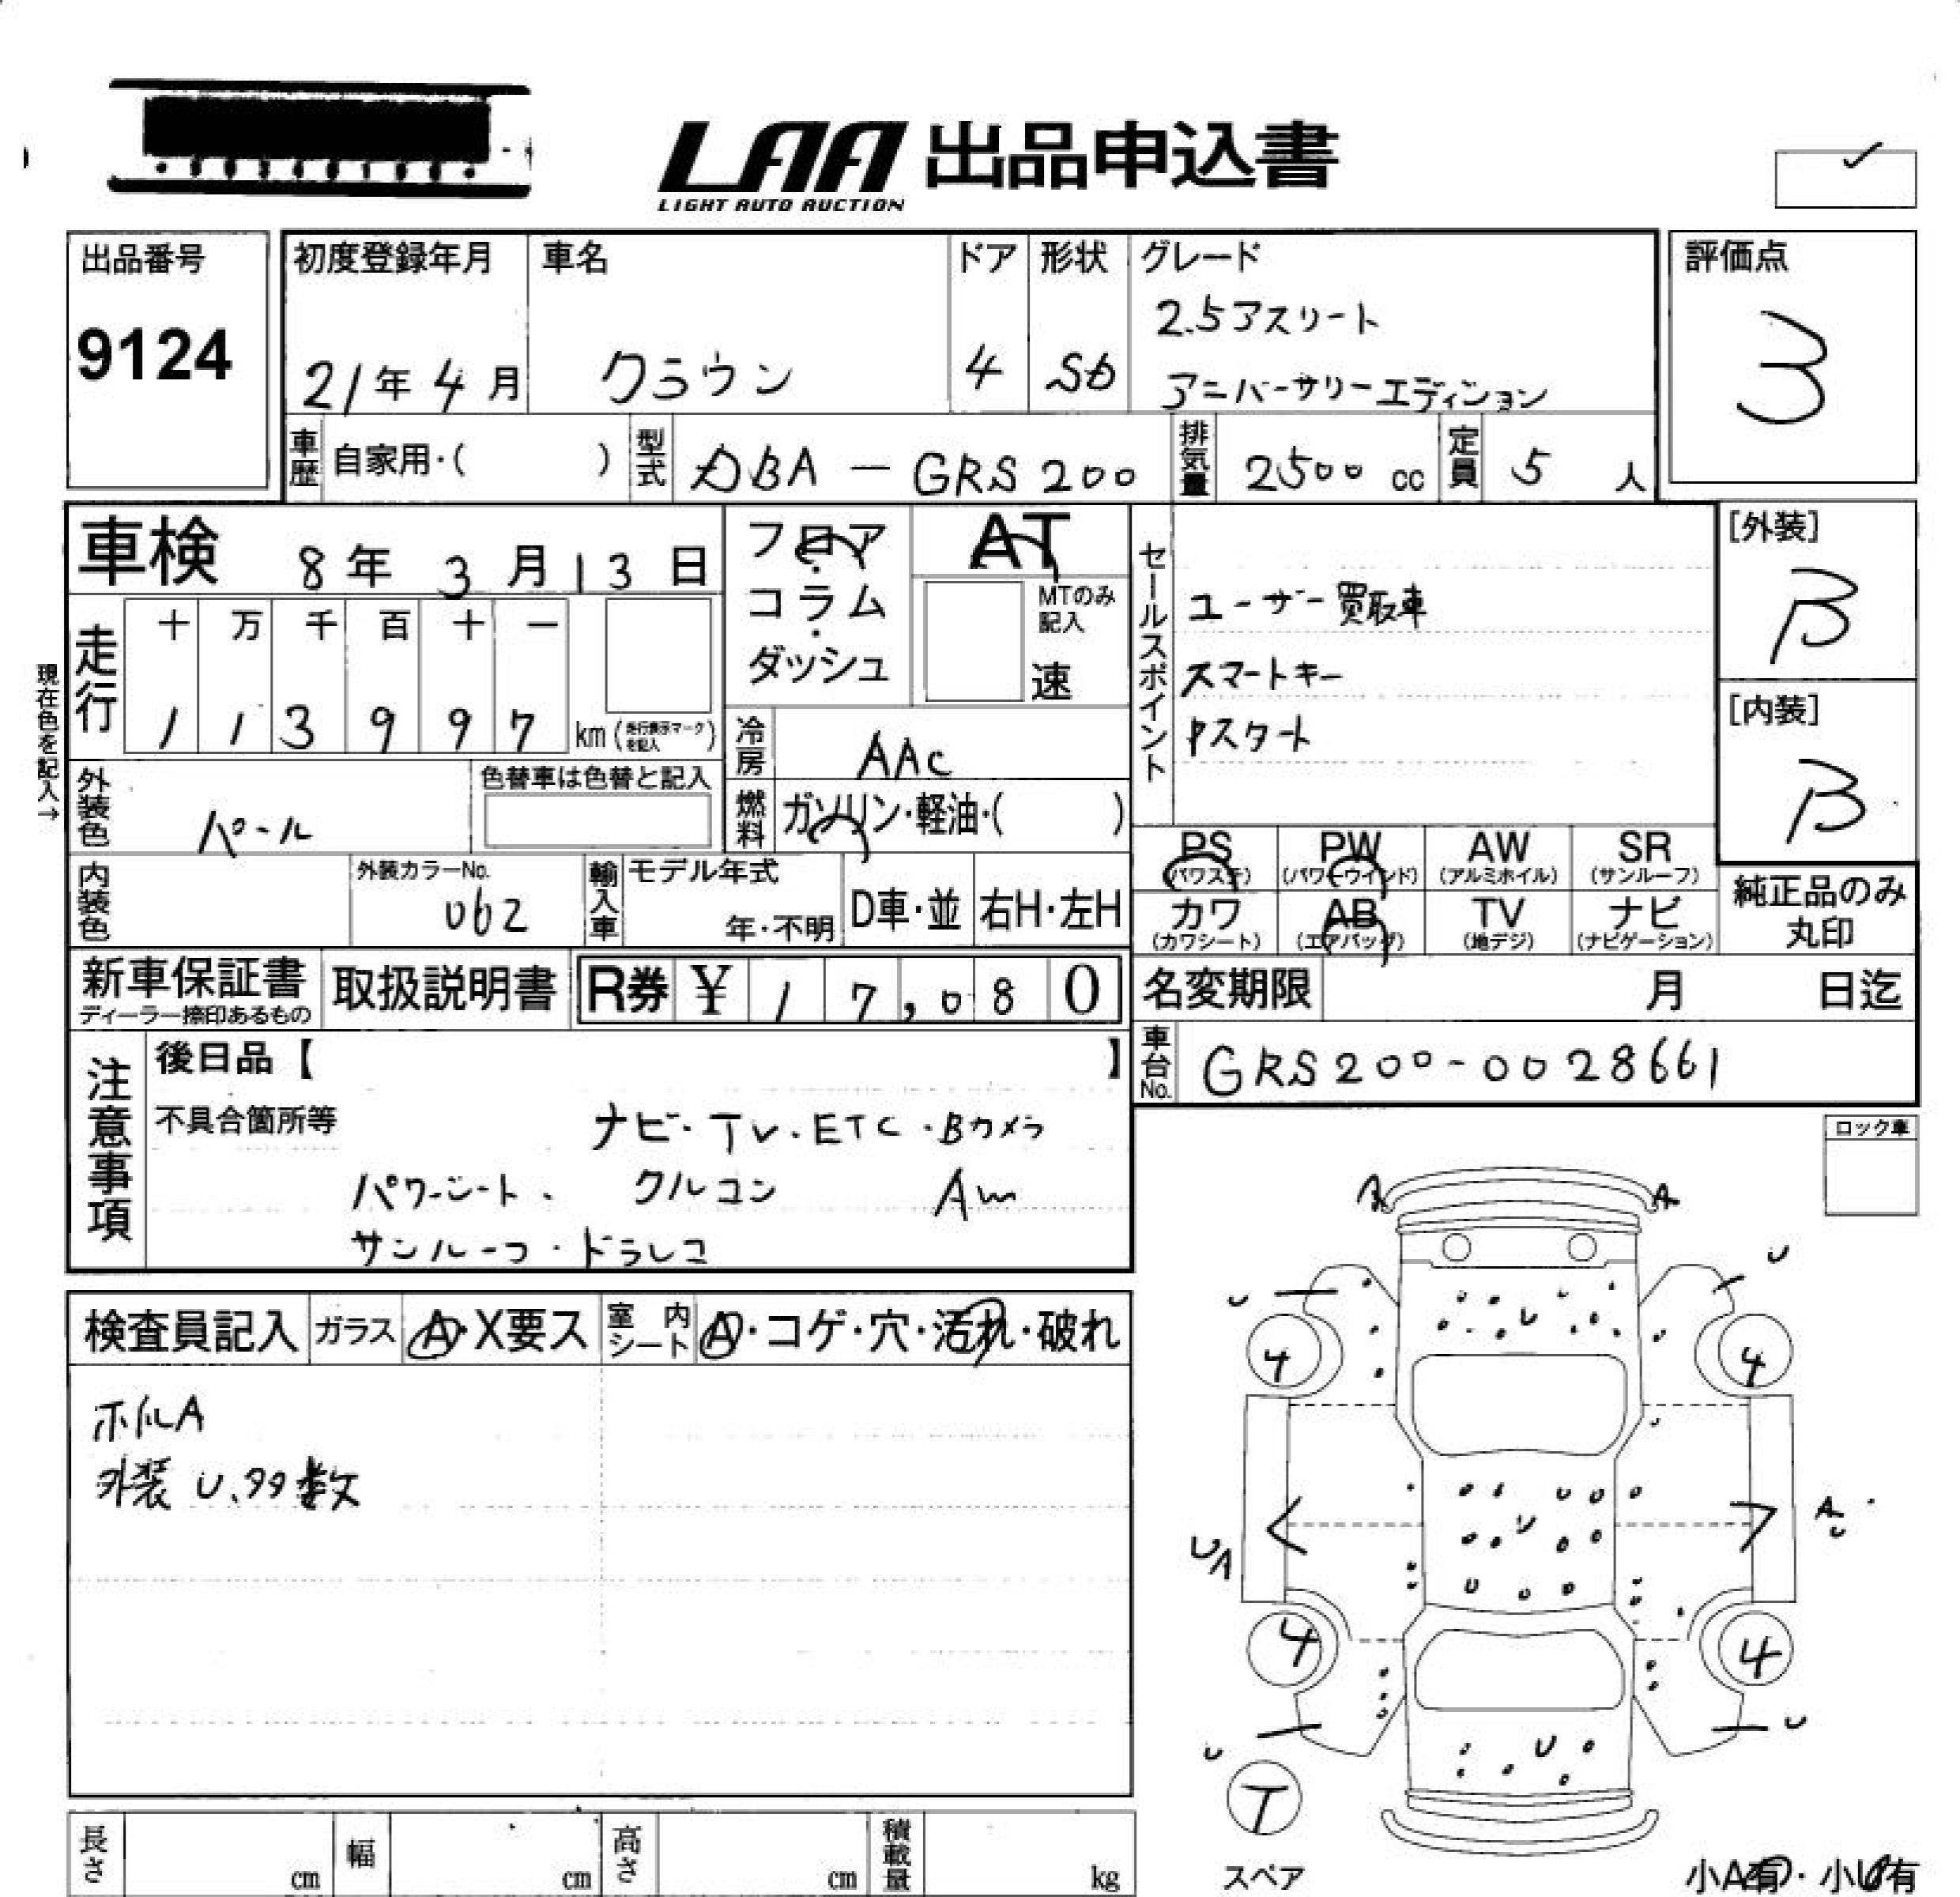 LAA 出品申込書
LIGHT AUTO AUCTION
出品番号
9124
初度登録年月
21年4月
車名
クラウン
ドア
4
形状
Sb
グレード
2.5アスリート
アニバーサリーエディション
評価点
3
車歴
自家用・( )
型式
DBA-GRS200
排気量
2500 cc
定員
5 人
車検 8年3月13日
フロア・コラム・ダッシュ
AT
MTのみ記入
速
セールスポイント
ユーザー買取車
スマートキー
Pスタート
[外装]
B
[内装]
B
現在色を記入→
走行
十 万 千 百 十 一
1 1 3 9 9 7 km (走行表示マークを記入)
冷房
AAC
燃料
ガソリン・軽油・( )
外装色
パール
色替車は色替と記入
内装色
外装カラーNo.
062
輸入車
モデル年式
年・不明
D車・並
右H・左H
PS (パワステ)
PW (パワーウインド)
AW (アルミホイル)
SR (サンルーフ)
カワ (カワシート)
AB (エアバッグ)
TV (地デジ)
ナビ (ナビゲーション)
純正品のみ丸印
新車保証書
ディーラー捺印あるもの
取扱説明書
R券 ¥ 17,080
名変期限 月 日迄
車台No.
GRS200-0028661
注意事項
後日品【 】
不具合箇所等
ナビ・TV・ETC・Bカメラ
パワーシート、クルコン Aw
サンルーフ・ドラレコ
ロック車
検査員記入
ガラス A・X要ス
室内シート A・コゲ・穴・汚れ・破れ
ホイルA
外装 U.99数
A A
U U
4 4
U
UA A U
U
4 4
U U U
T
スペア
小A有・小U有
長さ cm
幅 cm
高さ cm
積載量 kg